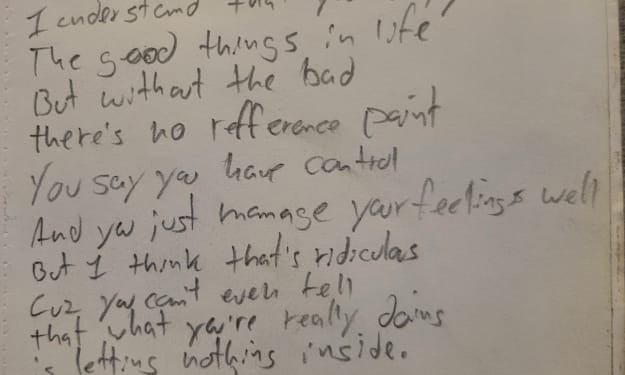 I understand
The good things in life
But without the bad
there's no refference point
You say you have control
And you just manage your feelings well
But I think that's ridiculas
Cuz you can't even tell
that what you're really doing
is letting nothing inside.